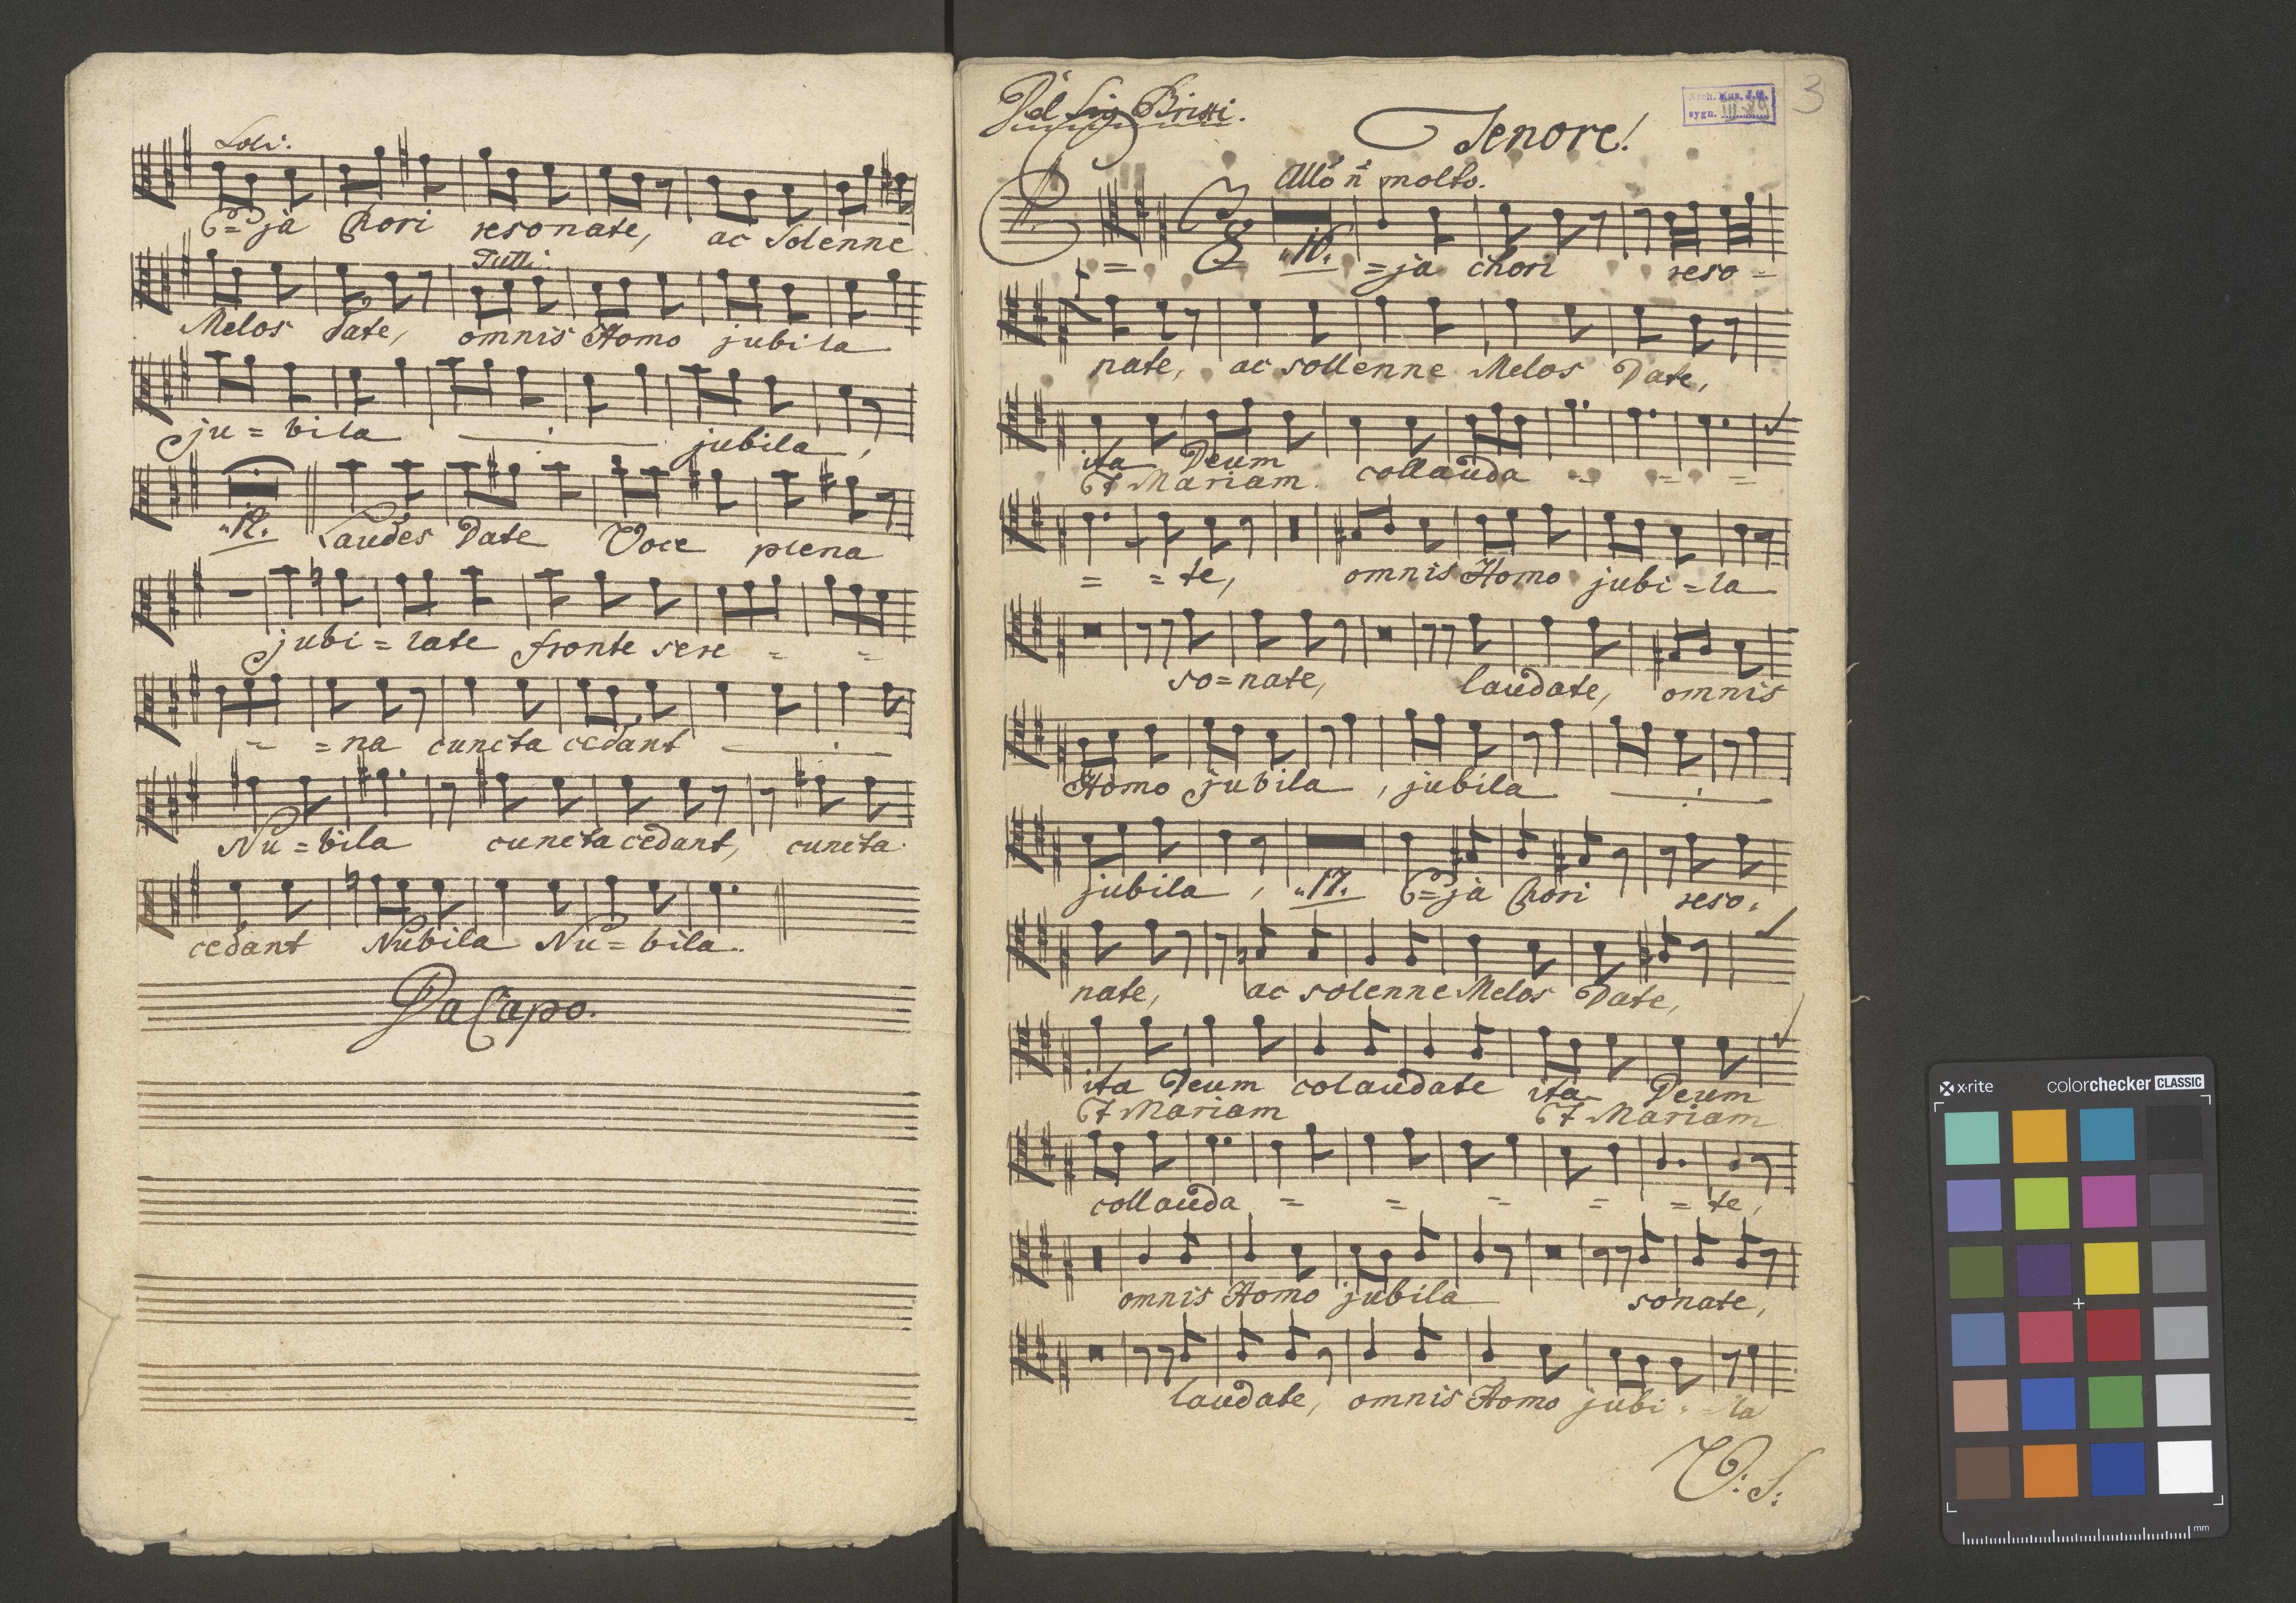 Soli:
E=ja Chori resonate, ac Solenne
Tutti:
Melos date, omnis Homo jubila
ju=bila jubila,
"12. Laudes Date Voce plena
jubi=late fronte sere = =
- =na cuncta cedant
Nu=bila cuncta cedant, cuncta
cedant Nubila Nu=bila.
Da Capo.
Del Sig Brixi.
Tenore!
Arch. Mus. J.G.
sygn. III-
3
Allo ñ molto.
3
8
"16. =ja chori reso=
nate, ac sollenne Melos Date,
ita Deum collauda = = =
Et Mariam
= =te, omnis Homo jubi=la
so=nate, laudate, omnis
Homo jubila, jubila
jubila, "17. E=ja Chori reso.
nate, ac solenne Melos Date,
ita Deum colaudate ita Deum
Et Mariam Et Mariam
collauda = = = = = te,
omnis Homo jubila sonate,
laudate, omnis Homo jubi - la
V: S:
x·rite colorchecker CLASSIC
mm